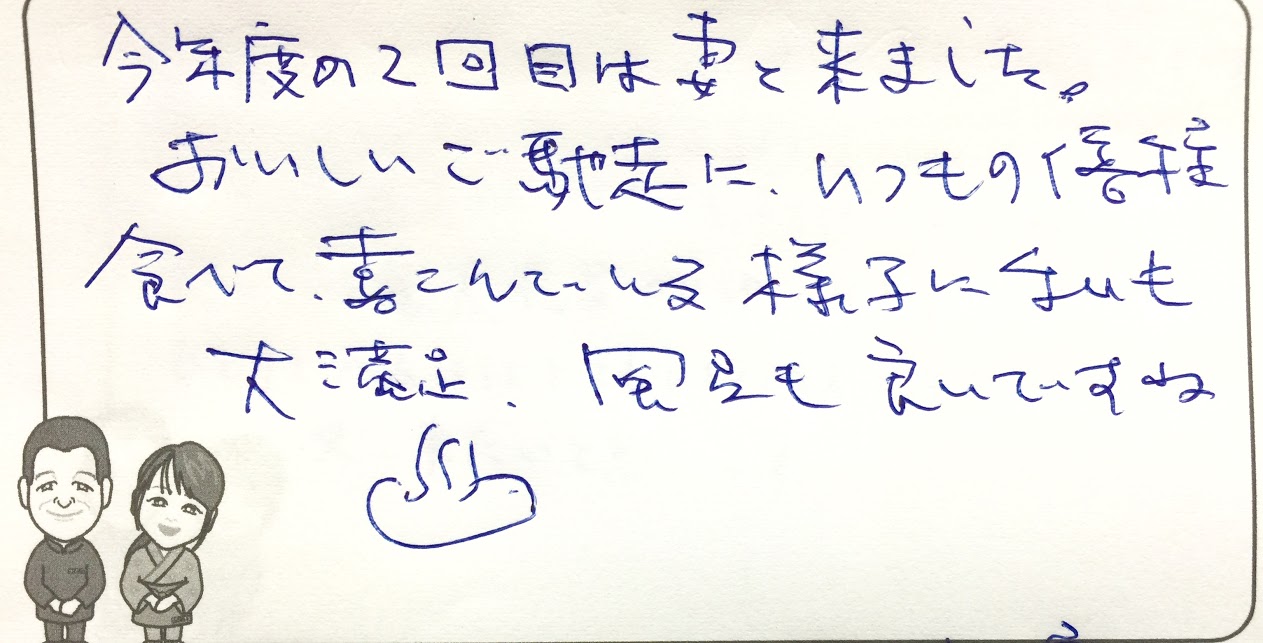 今年度の2回目は妻と来ました。
おいしいご馳走に、いつもの倍程
食べて、喜こんでいる様子に
大満足、風呂も良いですね